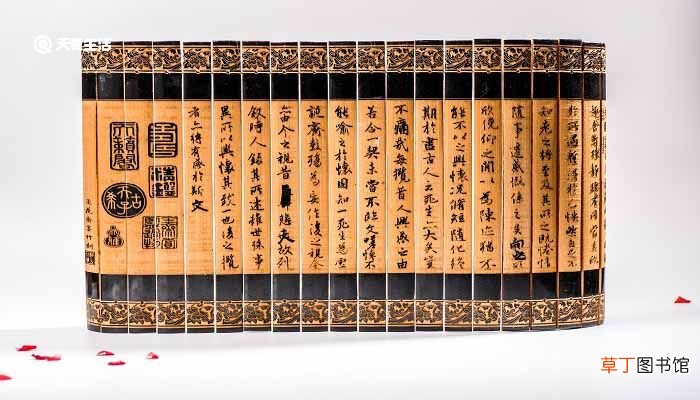 天奇生活
趣舍萬殊靜躁不同當其欣
於所遇暫得於己怏然自足不
知老之將至及其所之既惓情
隨事遷感慨係之矣向之所
欣俛仰之閒以為陳迹猶不
能不以之興懷況脩短隨化終
期於盡古人云死生亦大矣豈
不痛哉每攬昔人興感之由
若合一契未嘗不臨文嗟悼不
能喻之於懷固知一死生為虛
誕齊彭殤為妄作後之視今
亦由今之視昔悲夫故列
敘時人錄其所述雖世殊事
異所以興懷其致一也後之攬
者亦將有感於斯文
草丁图书馆